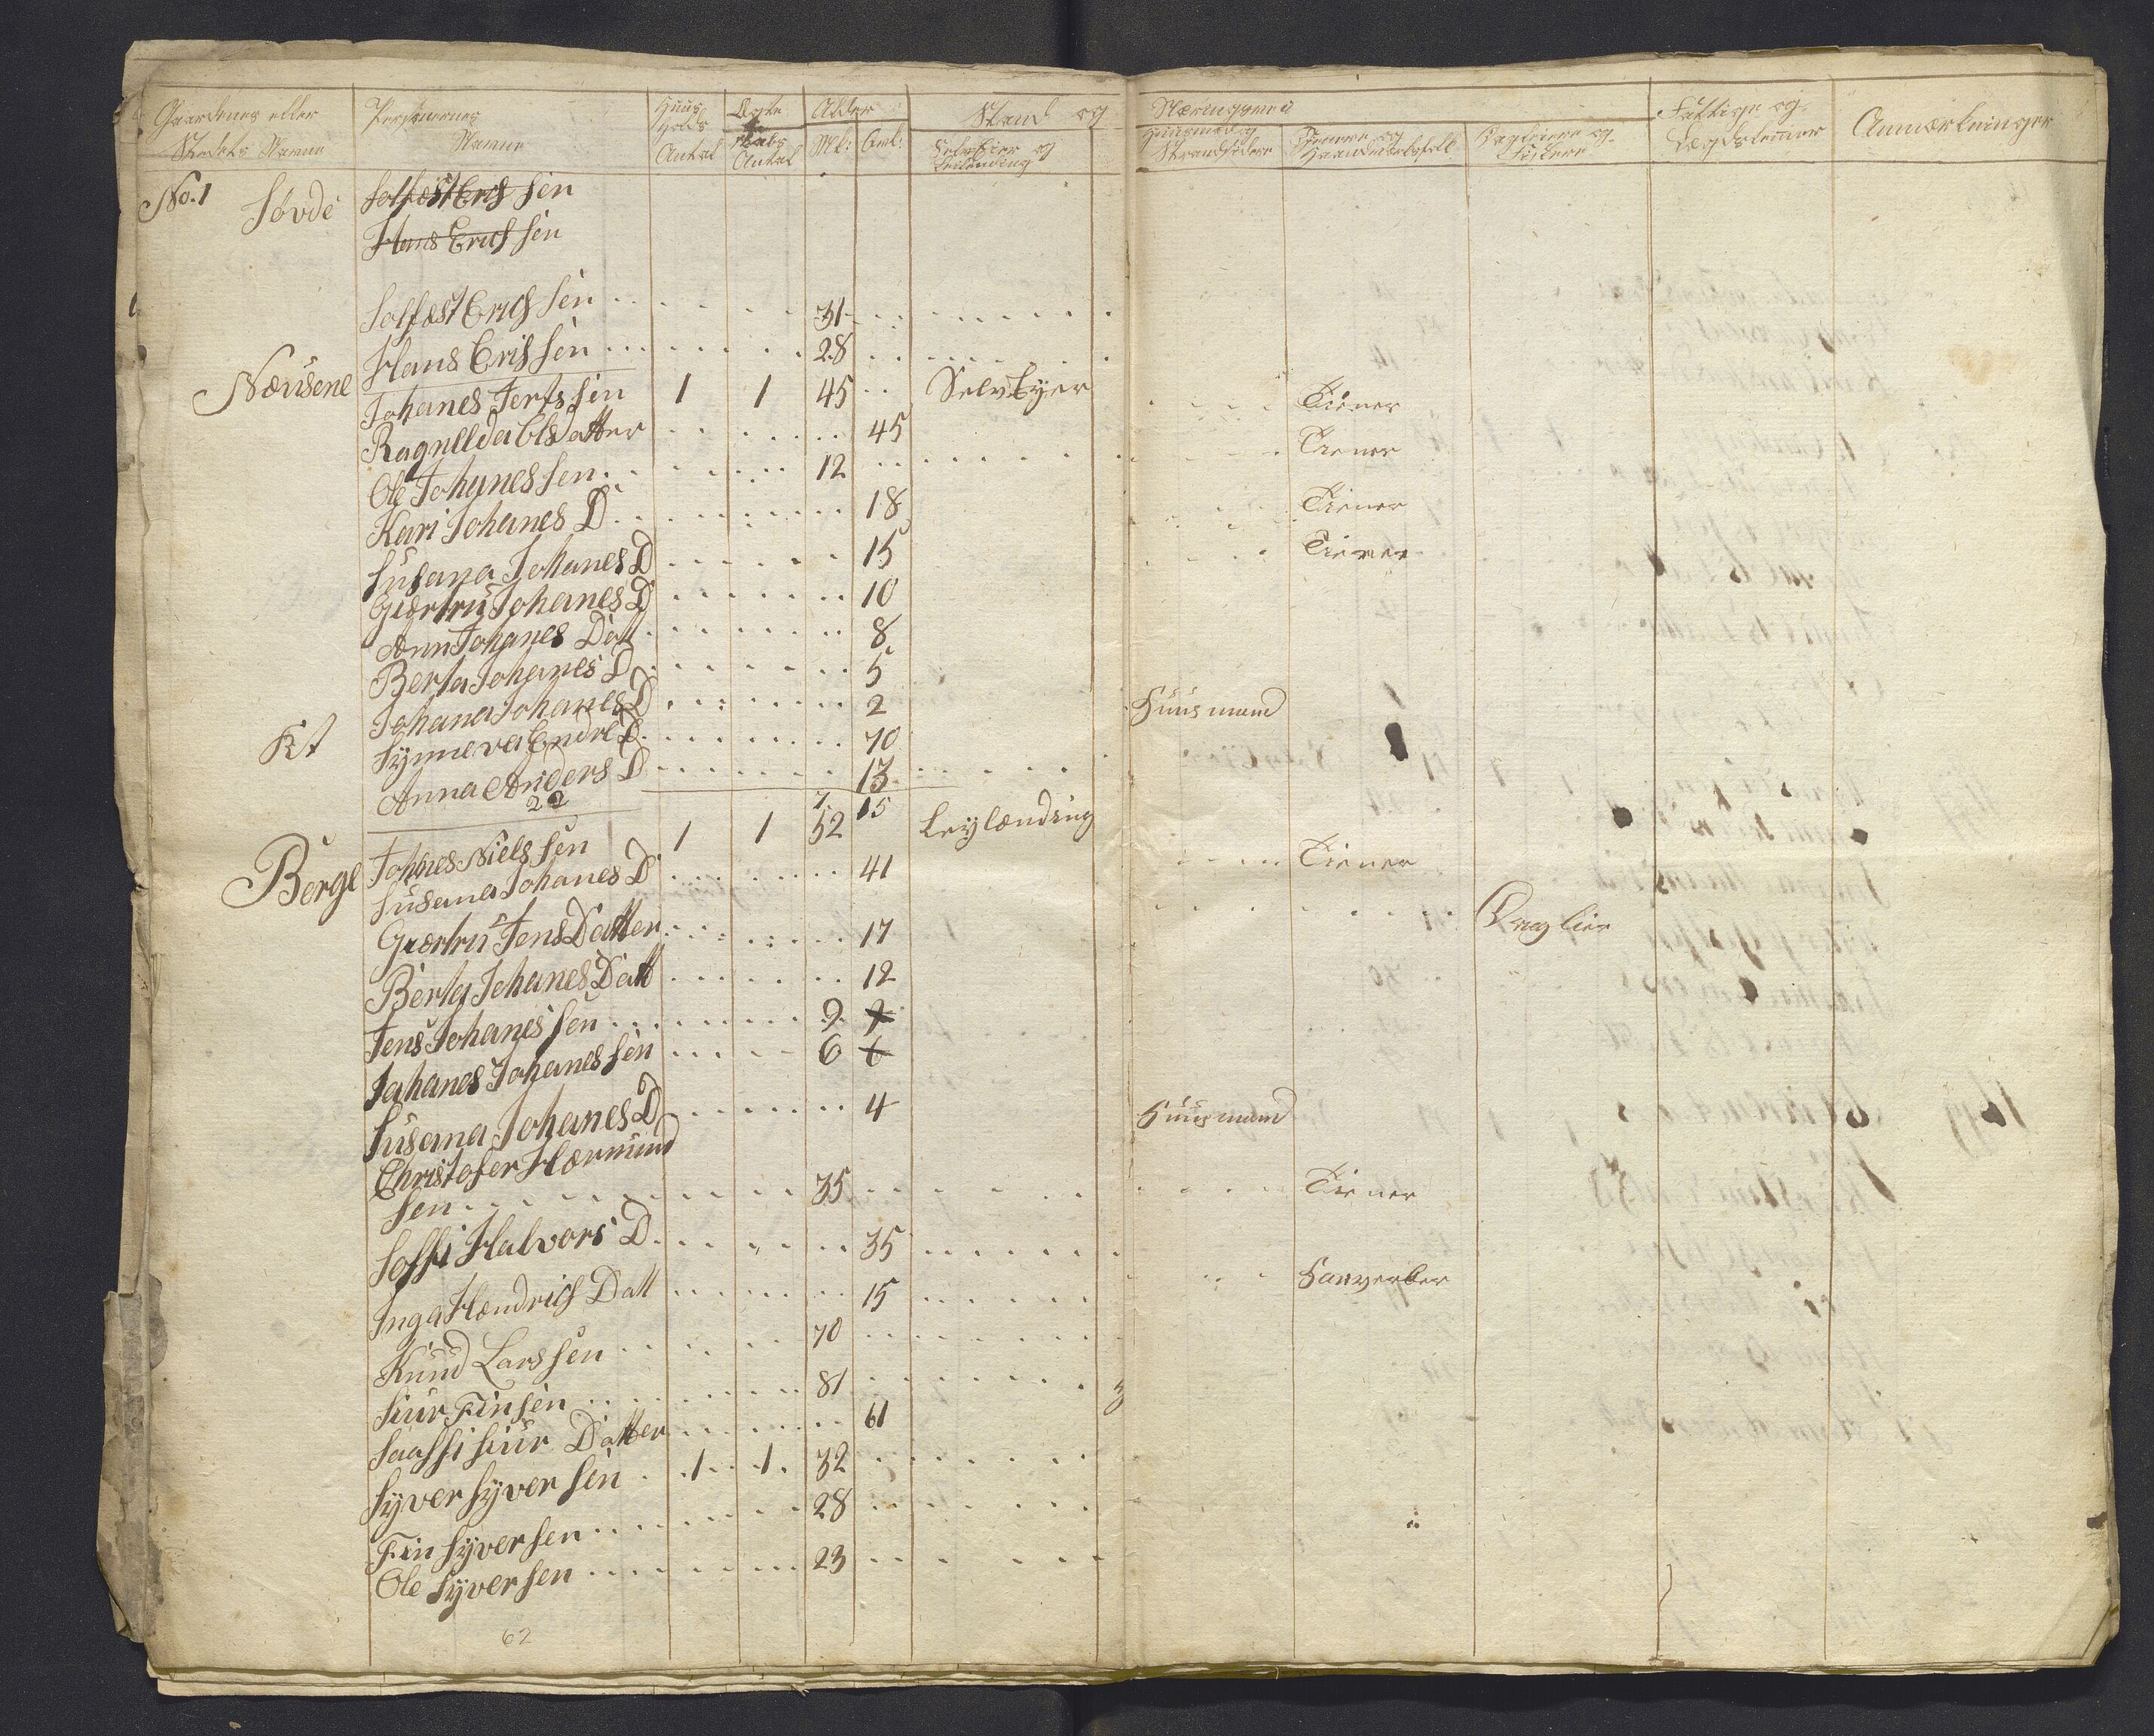 Gaardenes eller Stedets Navne
Personernes Navne
Huus Holds Antal
Ægte skabs Antal
Alder
Mk: Qvk:
Stand og
Selveier og Leilending
Næringsvei
Huusmænd og Strandsidere
Tienere og Haandværksfolk
Dagleiere og Fiskere
Fattige og Lægdslemer
Anmærkninger
No. 1 Søvde Solfæst Erichsen
Hans Erichsen
Solfæst Erichsen 31
Hans Erissen 28
Nævsene Johanes Jertssen 1 1 45 Selv Eyer Tiener
Ragnelda Olsdatter 45 Tiener
Ole Johanessen 12
Kari Johanes D 18 Tiener
Susana Johanes D 15 Tiener
Giærtru Johanes D 10
Ann Johanes Datt 8
Berta Johanes D 5
Johana Johanes D 2 Huusmand
Kt Synneva Endre D 70
Anna Anders D 13
22 7 15
Berge Johnes Nielssen 1 1 52 Leylænding
Susana Johanes D 41 Tiener
Giærtru Jens Datter 17 Dagleier
Berta Johanes Datt 12
Jens Johanessen 9
Johanes Johanessen 6 6
Susana Johanes D 4 Huusmand
Christofer Hærmund
sen 35 Tiener
Soffi Halvors D 35
Inga Hændrichs Datt 15
Knud Larssen 70
Siur Finsen 81
Siur Datter 61
Syver Syversen 1 1 32
Fin Syversen 28
Ole Syversen 23
62